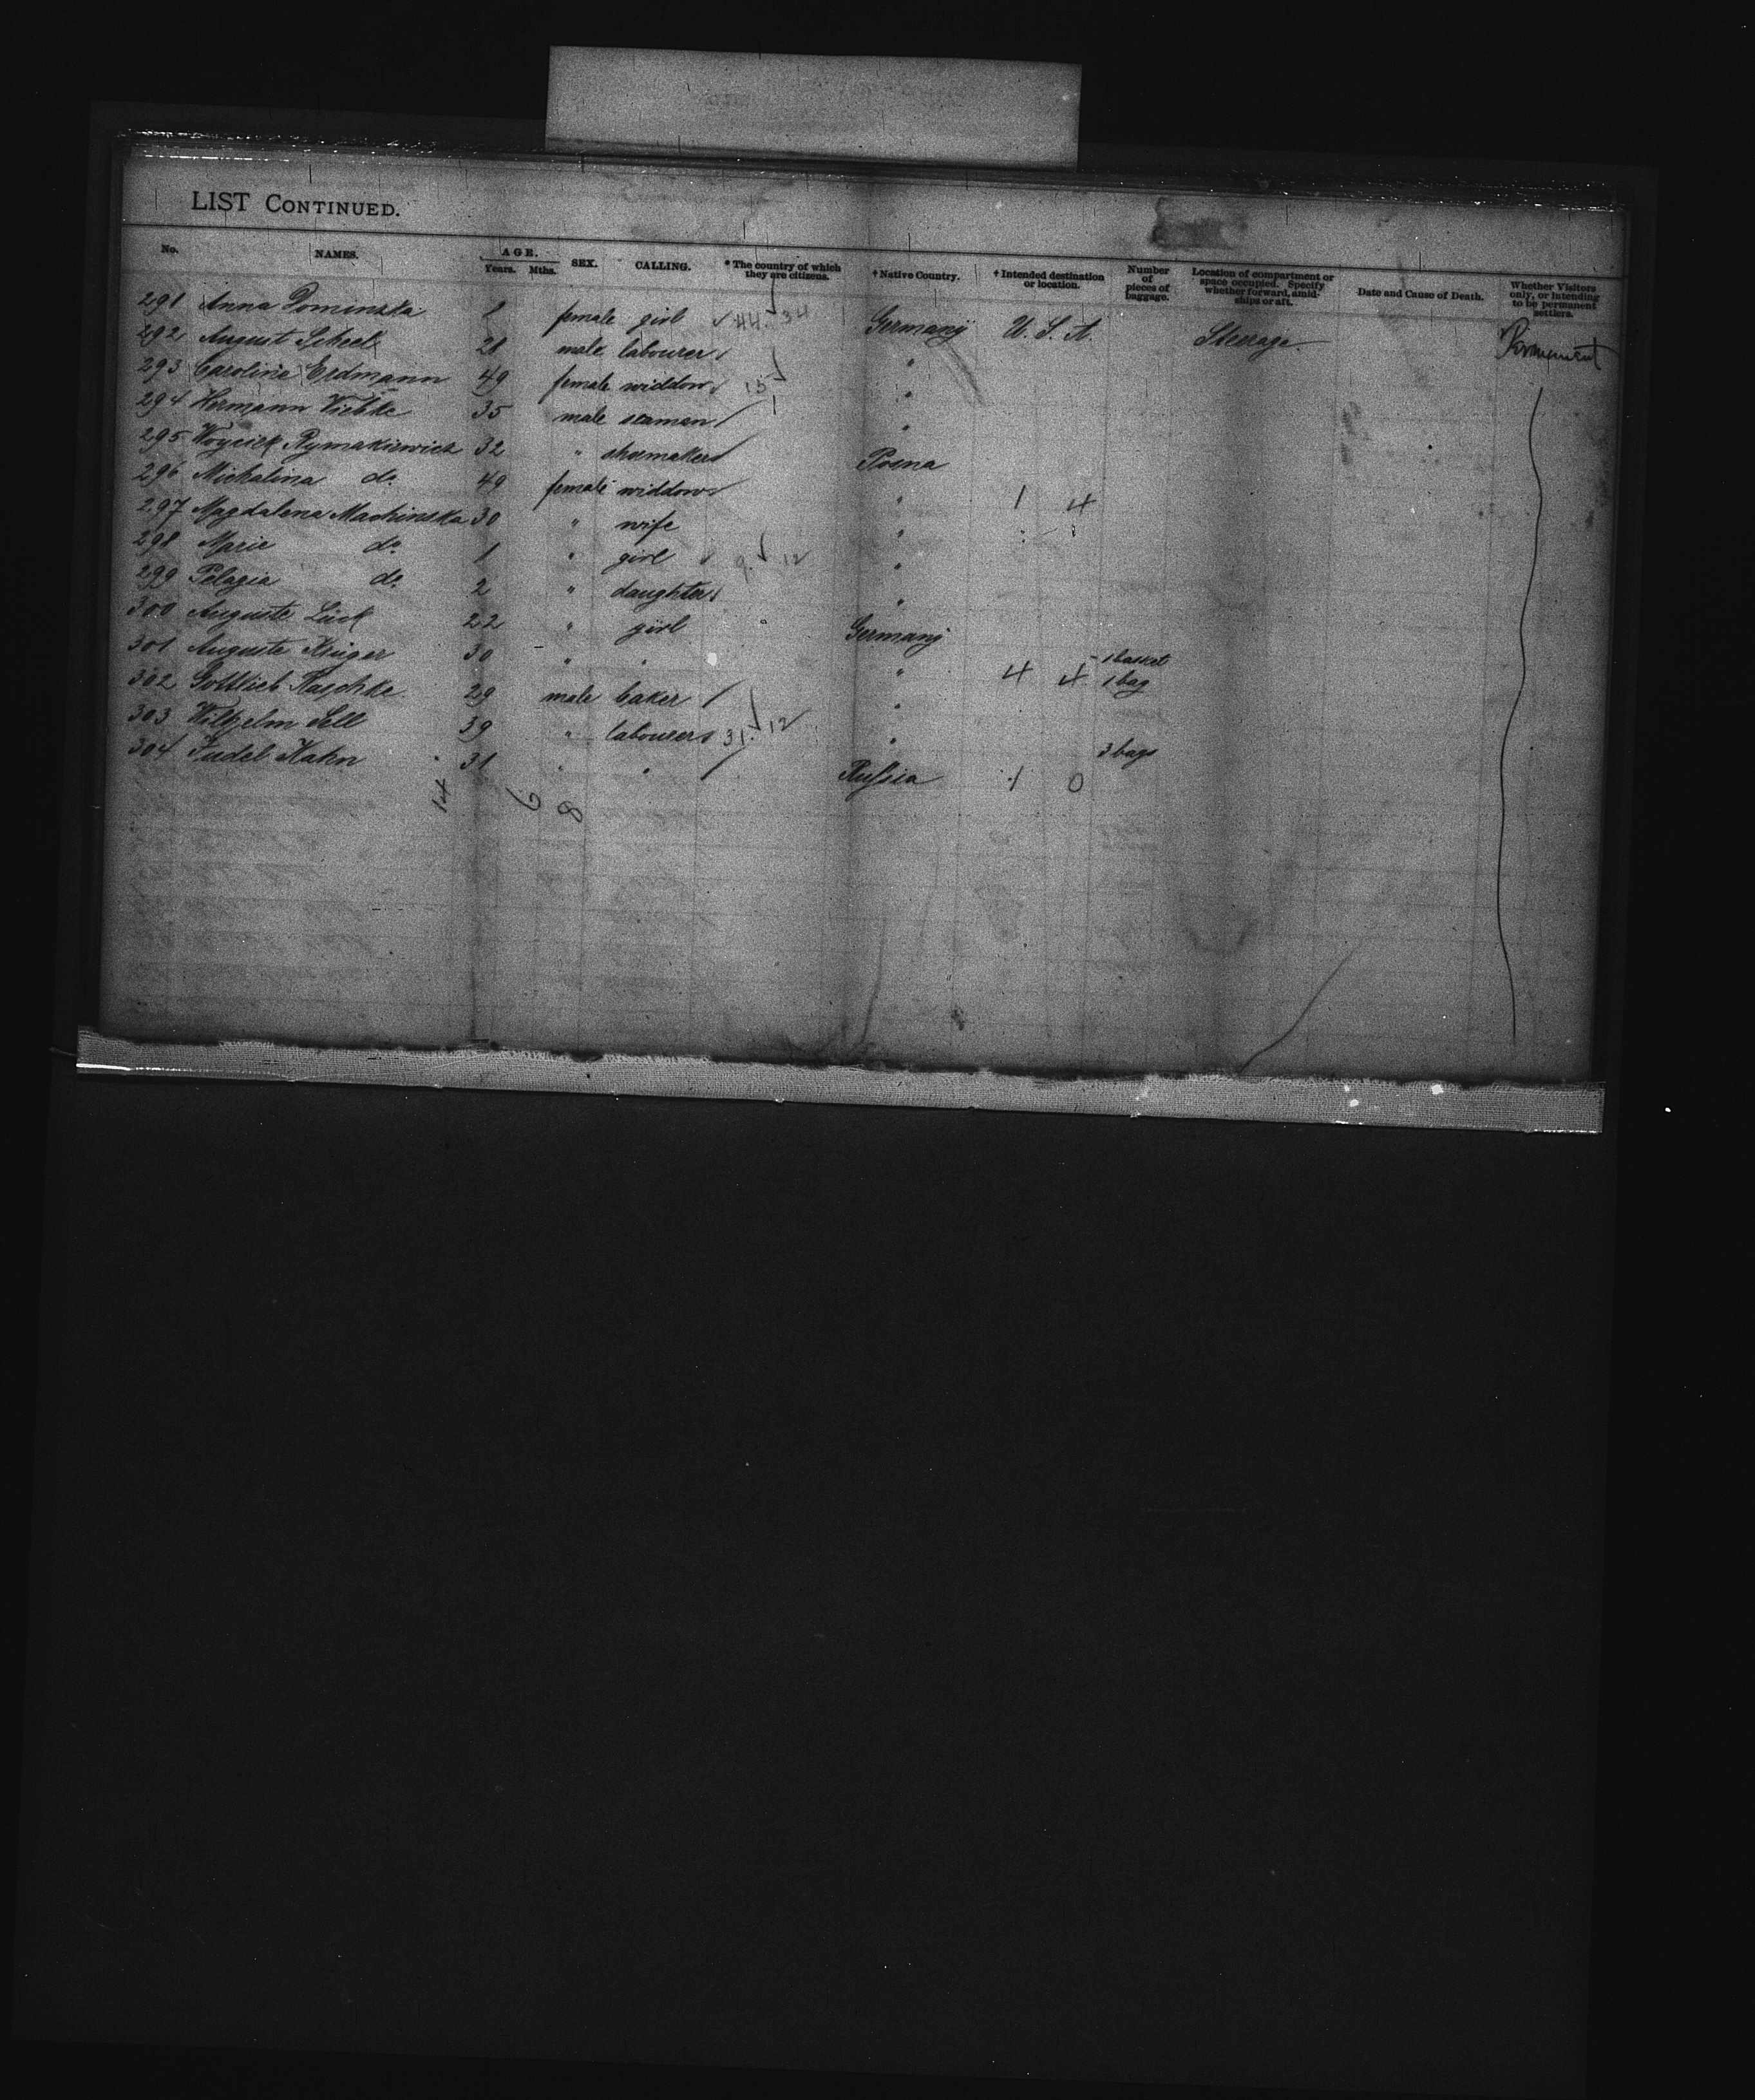 LIST CONTINUED.
No. NAMES. AGE. Years. Mths. SEX. CALLING. * The country of which they are citizens. † Native Country. † Intended destination or location. Number of pieces of baggage. Location of compartment or space occupied. Specify whether forward, amidships or aft. Date and Cause of Death. Whether Visitors only, or intending to be permanent settlers.
291 Anna Dominska 2 female girl 44. 34 Germany U. S. A. Steerage. Permanent
292 August Scheel 28 male labourer "
293 Caroline Erdmann 49 female widdow 15 "
294 Hermann Viebke 35 male seaman "
295 Woycick Rymakiewicz 32 " shoemaker Posna
296 Michalina do. 49 female widdow " 1 4
297 Magdalena Machinska 30 " wife "
298 Marie do. 1 " girl 9. 12 "
299 Pelagia do. 2 " daughter "
300 Auguste Lück 22 " girl Germany
301 Auguste Krüger 30 " " " 4 4 1 basket 1 bag
302 Gottlieb Kaschke 29 male baker "
303 Wilhelm Sell 39 " labourer 31. 12 " 3 bags
304 Judel Kahn 31 " " Russia 1 0
14 6 8